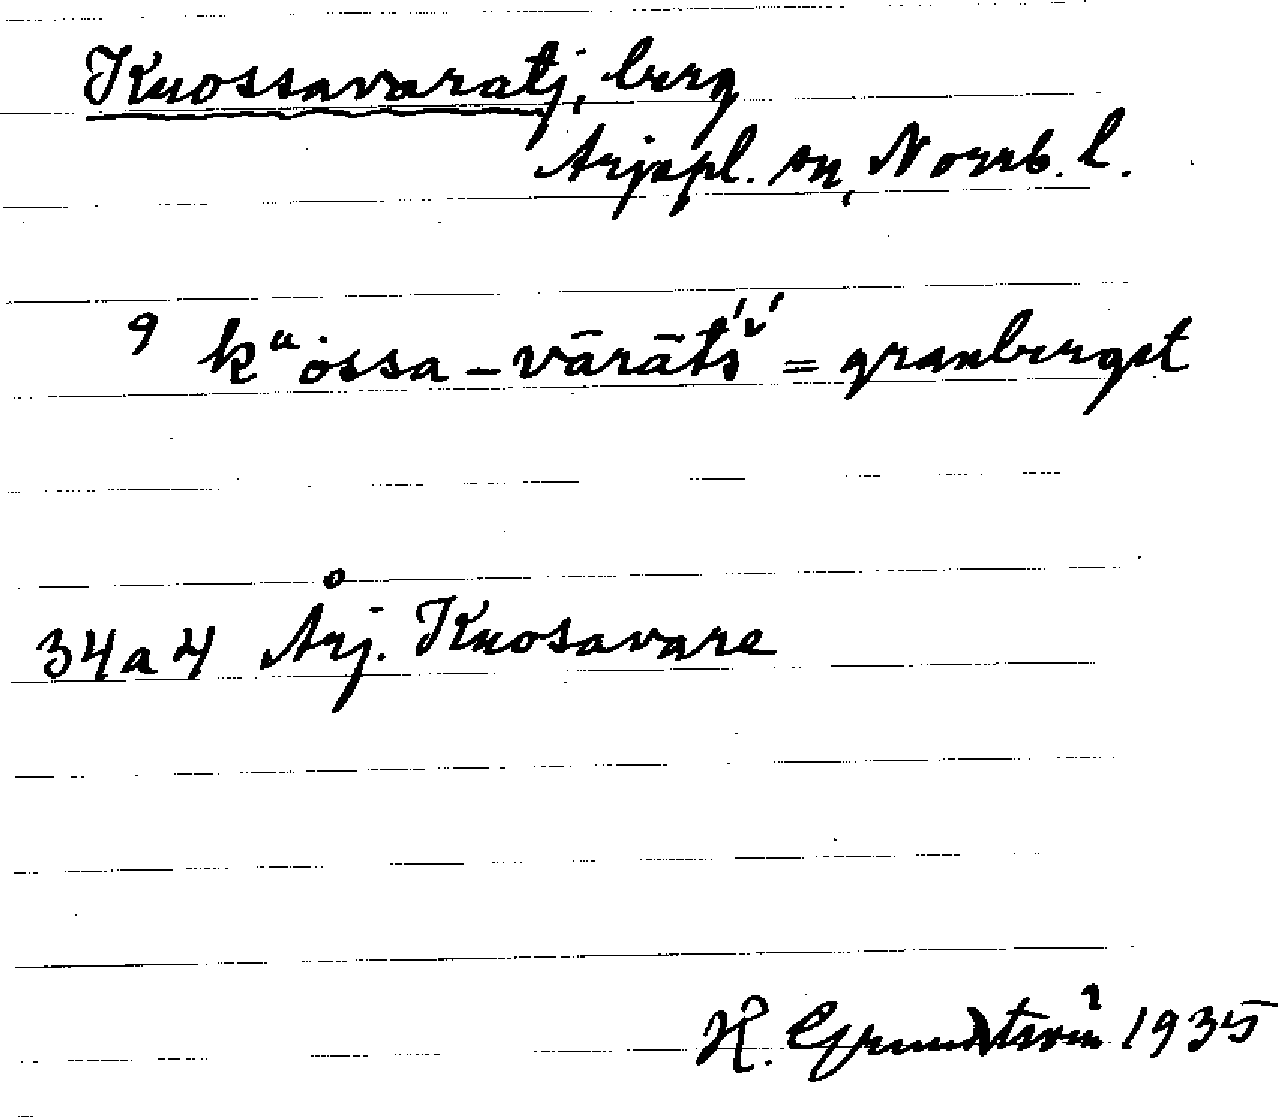 Kuossavaratj, berg
Arjepl. sn, Norrb. l.
9 kᵘȯssa-vārāt́š́ = granberget
34a4 Årj. Kuosavare
H. Grundström 1935